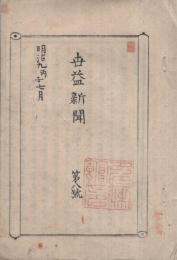 明治九丙子七月
世益新聞
第八號